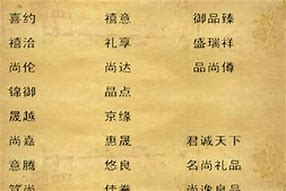 喜约 禧意 御品臻
禧洽 礼享 盛瑞祥
尚伦 尚达 品尚傅
锦御 品点
晟越 京缘
尚嘉 惠晟 君诚天下
意腾 悠良 名尚礼品
尚逸良品